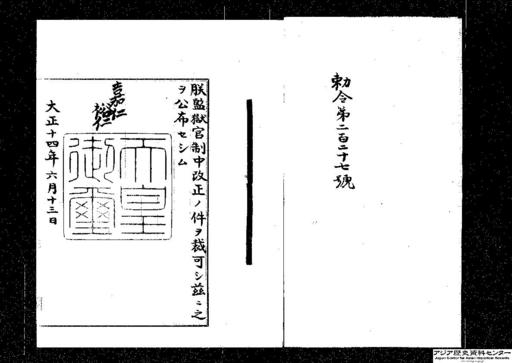 勅令第二百二十七號
朕監獄官制中改正ノ件ヲ裁可シ茲ニ之
ヲ公布セシム
嘉仁
裕仁
天皇
御璽
大正十四年六月十三日
アジア歴史資料センター
Japan Center for Asian Historical Records